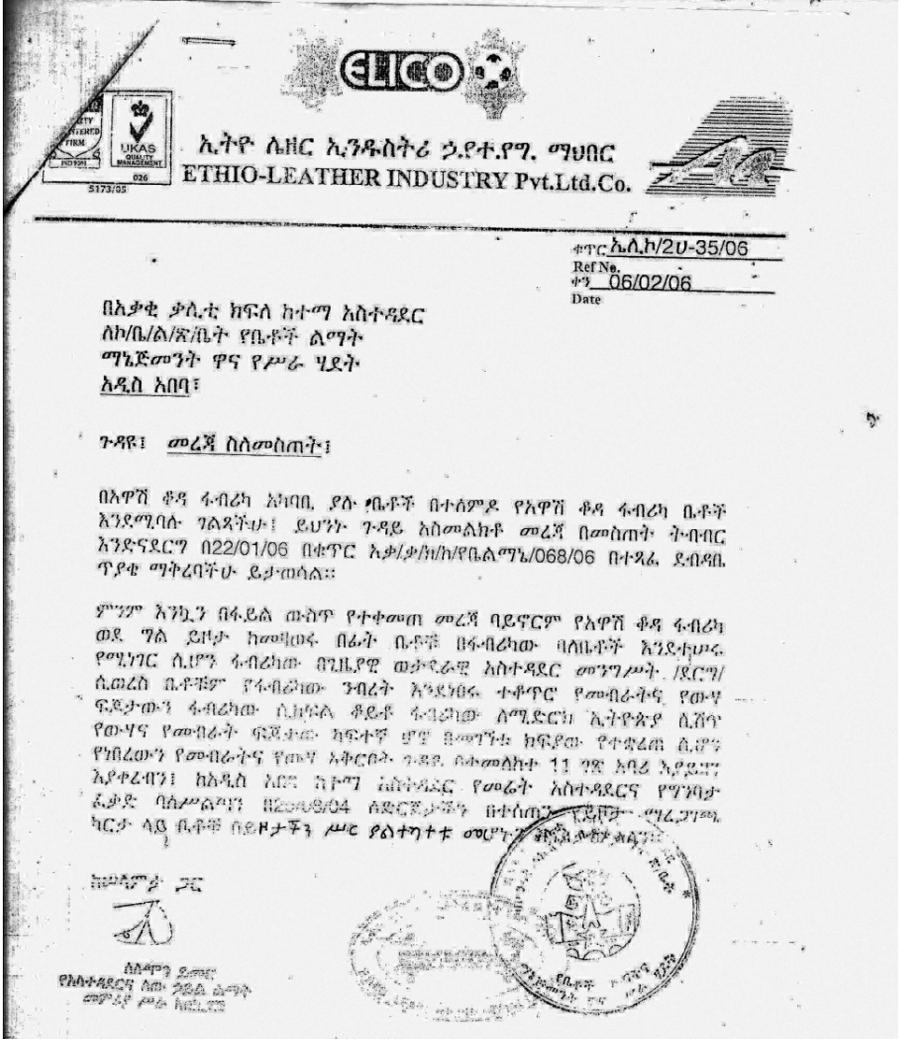 ELICO
UKAS
QUALITY
MANAGEMENT
026
5173/05
ኢትዮ ሌዘር ኢንዱስትሪ ኃ.የተ.የግ. ማህበር
ETHIO-LEATHER INDUSTRY Pvt.Ltd.Co.
ቁጥር ኤሊኮ/2ሀ-35/06
Ref No.
ቀን 06/02/06
Date
በአቃቂ ቃሊቲ ክፍለ ከተማ አስተዳደር
ለኮ/ቤ/ል/ጽ/ቤት የቤቶች ልማት
ማኔጅመንት ዋና የሥራ ሂደት
አዲስ አበባ፣
ጉዳዩ፤ መረጃ ስለመስጠት፤
በአዋሽ ቆዳ ፋብሪካ አካባቢ ያሉ ቤቶች በተለምዶ የአዋሽ ቆዳ ፋብሪካ ቤቶች
እንደሚባሉ ገልጻችሁ፤ ይህንኑ ጉዳይ አስመልክቶ መረጃ በመስጠት ትብብር
እንድናደርግ በ22/01/06 በቁጥር አቃ/ቃ/ክ/ከ/የቤልማኔ/068/06 በተጻፈ ደብዳቤ
ጥያቄ ማቅረባችሁ ይታወሳል፡፡
ምንም እንኳን በፋይል ውስጥ የተቀመጠ መረጃ ባይኖርም የአዋሽ ቆዳ ፋብሪካ
ወደ ግል ይዞታ ከመዛወሩ በፊት ቤቶቹ በፋብሪካው ባለቤቶች እንደተሠሩ
የሚነገር ሲሆን ፋብሪካው በጊዜያዊ ወታደራዊ አስተዳደር መንግሥት /ደርግ/
ሲወረስ ቤቶቹም የፋብሪካው ንብረት እንደነበሩ ተቆጥሮ የመብራትና የውሃ
ፍጆታውን ፋብሪካው ሲከፍል ቆይቶ ፋብሪካው ለሚድሮክ ኢትዮጵያ ሲሸጥ
የውሃና የመብራት ፍጆታው ከፍተኛ ሆኖ በመገኘቱ ክፍያው የተቋረጠ ሲሆን
የነበረውን የመብራትና የውሃ አቅርቦት ጉዳይ በተመለከተ 11 ገጽ አባሪ
እያቀረብን፤ ከአዲስ አበባ ከተማ አስተዳደር የመሬት አስተዳደርና የግንባታ
ፈቃድ ባለሥልጣን ለድርጅታችን በተሰጠን የይዞታ ማረጋገጫ
ካርታ ላይ ቤቶቹ በይዞታችን ሥር ያልተካተቱ
ከሠላምታ ጋር
የአስተዳደርና ሰው ኃይል ልማት